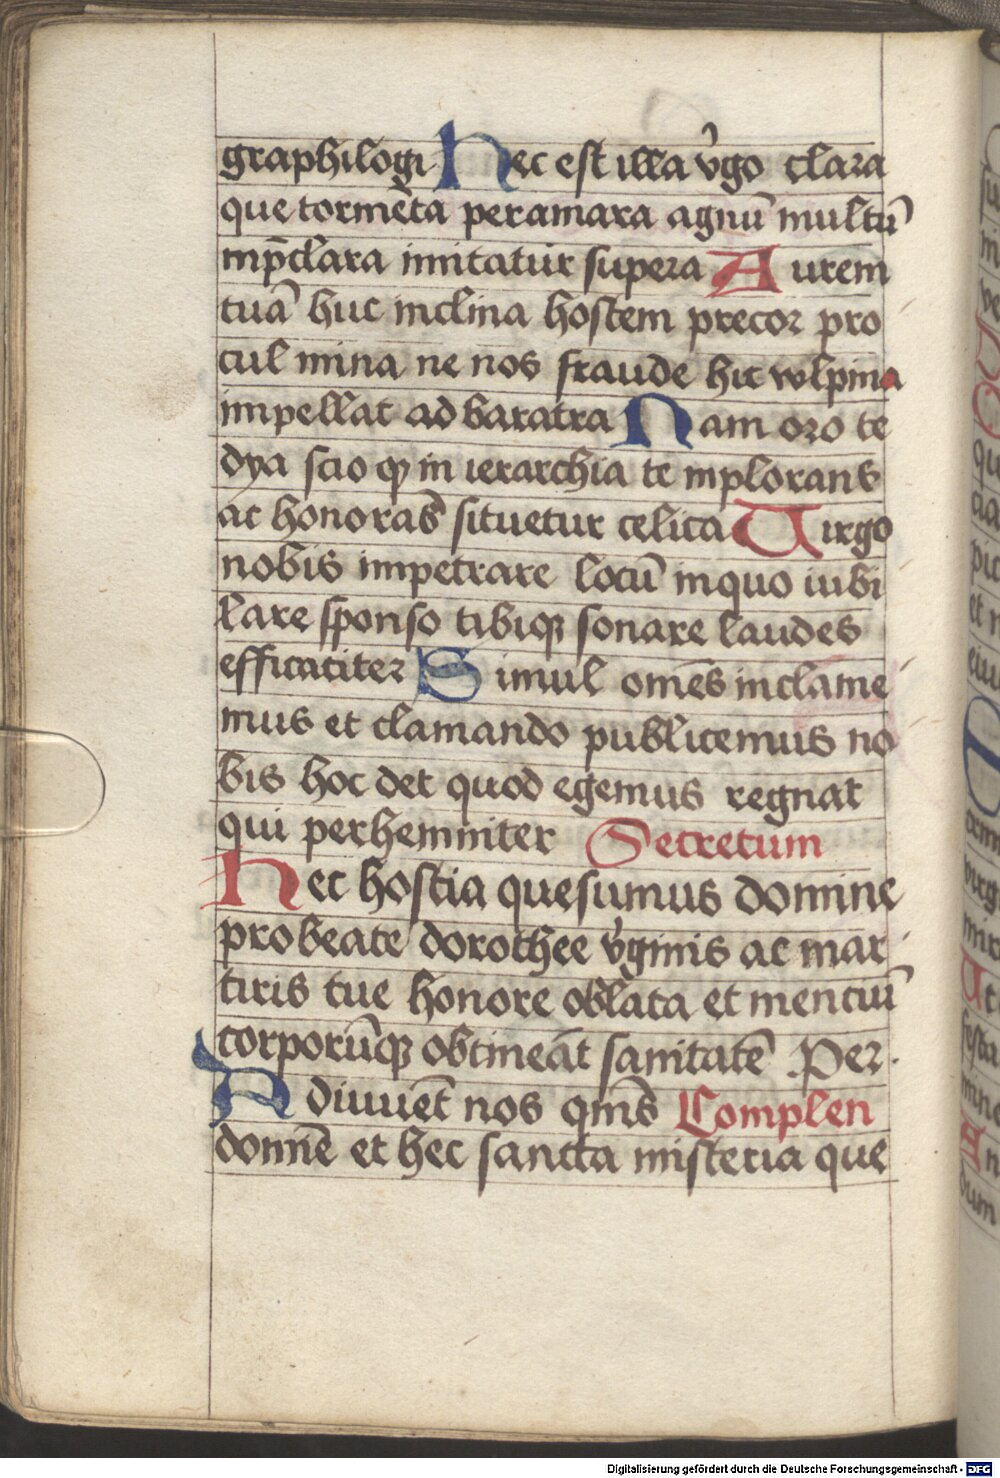 graphilogi Hec est illa v̾go clara
que tormēta peramara agnū multū
inp̄clara imitatur supera Aurem
tuā huc inclina hostem precor pro
cul mina ne nos fraude hic wlpina
impellat ad baratra Nam oro te
dya scio ꝙ in ierarchia te inplorans
ac honoras situetur celica Virgo
nobis impetrare locū inquo iubi
lare sponso tibiqꝫ sonare laudes
efficaciter Simul omēs inclame
mus et clamando publicemus no
bis hoc det quod egemus regnat
qui perhemniter Secretum
Hec hostia quesumus domine
pro beate dorothee v̾ginis ac mar
tiris tue honore oblata et mentiū
corporūqꝫ obtineāt sanitatē Per.
Adiuuēt nos qm̄s Complen
domīe et hec sancta misteria que
Digitalisierung gefördert durch die Deutsche Forschungsgemeinschaft - DFG